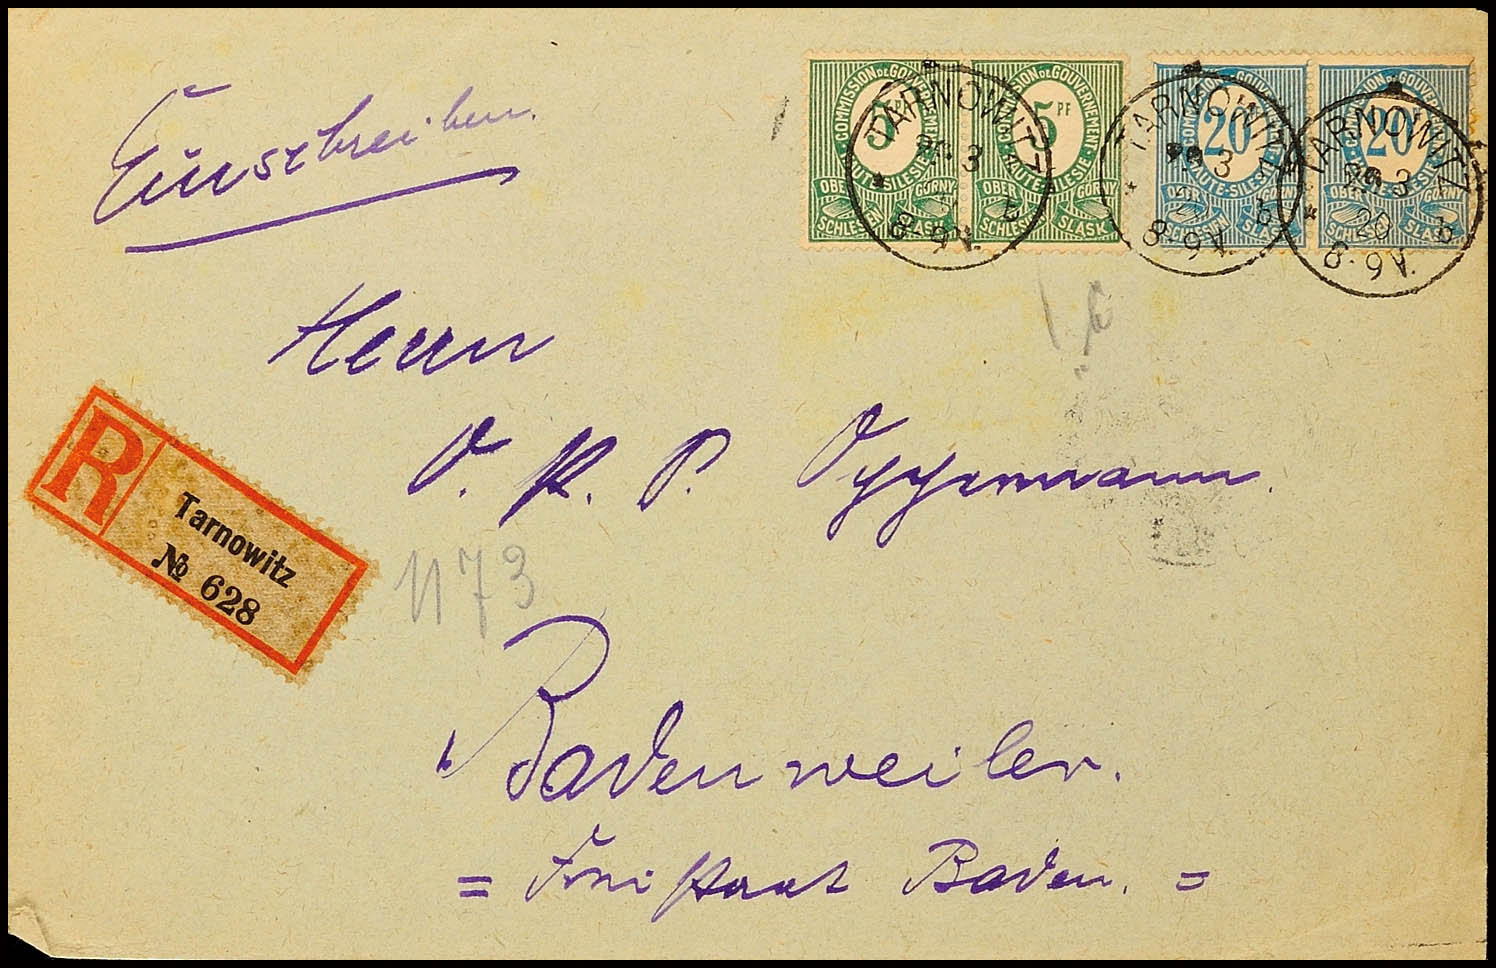 Einschreiben.
COMMISSION DE GOUVERNEMENT
HAUTE-SILESIE
5 PF
OBER SCHLESIEN
GORNY SLASK
COMMISSION DE GOUVERNEMENT
HAUTE-SILESIE
5 PF
OBER SCHLESIEN
GORNY SLASK
COMMISSION DE GOUVERNEMENT
HAUTE-SILESIE
20
OBER SCHLESIEN
GORNY SLASK
COMMISSION DE GOUVERNEMENT
HAUTE-SILESIE
20
OBER SCHLESIEN
GORNY SLASK
TARNOWITZ
3
* b
8-9V.
TARNOWITZ
3
* b
8-9V.
TARNOWITZ
3
20
* b
8-9V.
Herrn
O. K. P. Oppermann.
R
Tarnowitz
№ 628
1173
Badenweiler.
= Freistaat Baden. =